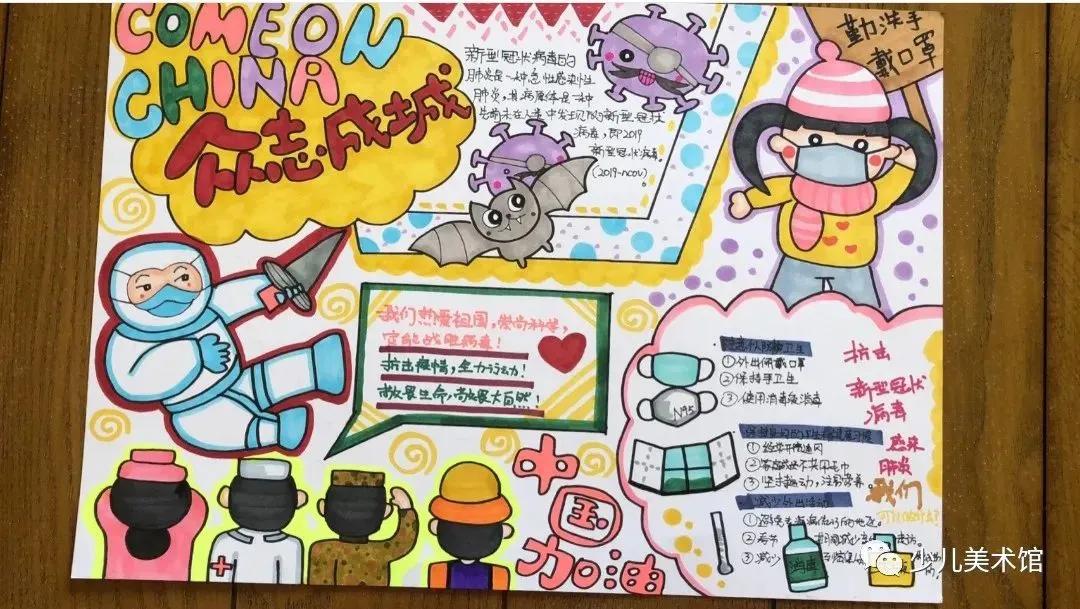 COME ON
CHINA
众志成城
新型冠状病毒的
肺炎是一种急性感染性
肺炎，其病原体是一种
先前未在人类中发现的新型冠状
病毒，即2019
新型冠状病毒。
(2019-ncov)
勤洗手
戴口罩
我们热爱祖国，崇尚科学，
定能战胜病毒！
抗击疫情，全力行动！
敬畏生命，敬畏大自然！
中国
加油
个人防护卫生
①外出佩戴口罩
②保持手卫生
③使用消毒液消毒
N95
①经常开窗通风
②家庭成员不共用毛巾
③坚持运动，注意营养。
减少外出活动
①避免去疾病流行的地区。
②春节
③减少
消毒
抗击
新型冠状
病毒
感染
肺炎
我们
少儿美术馆